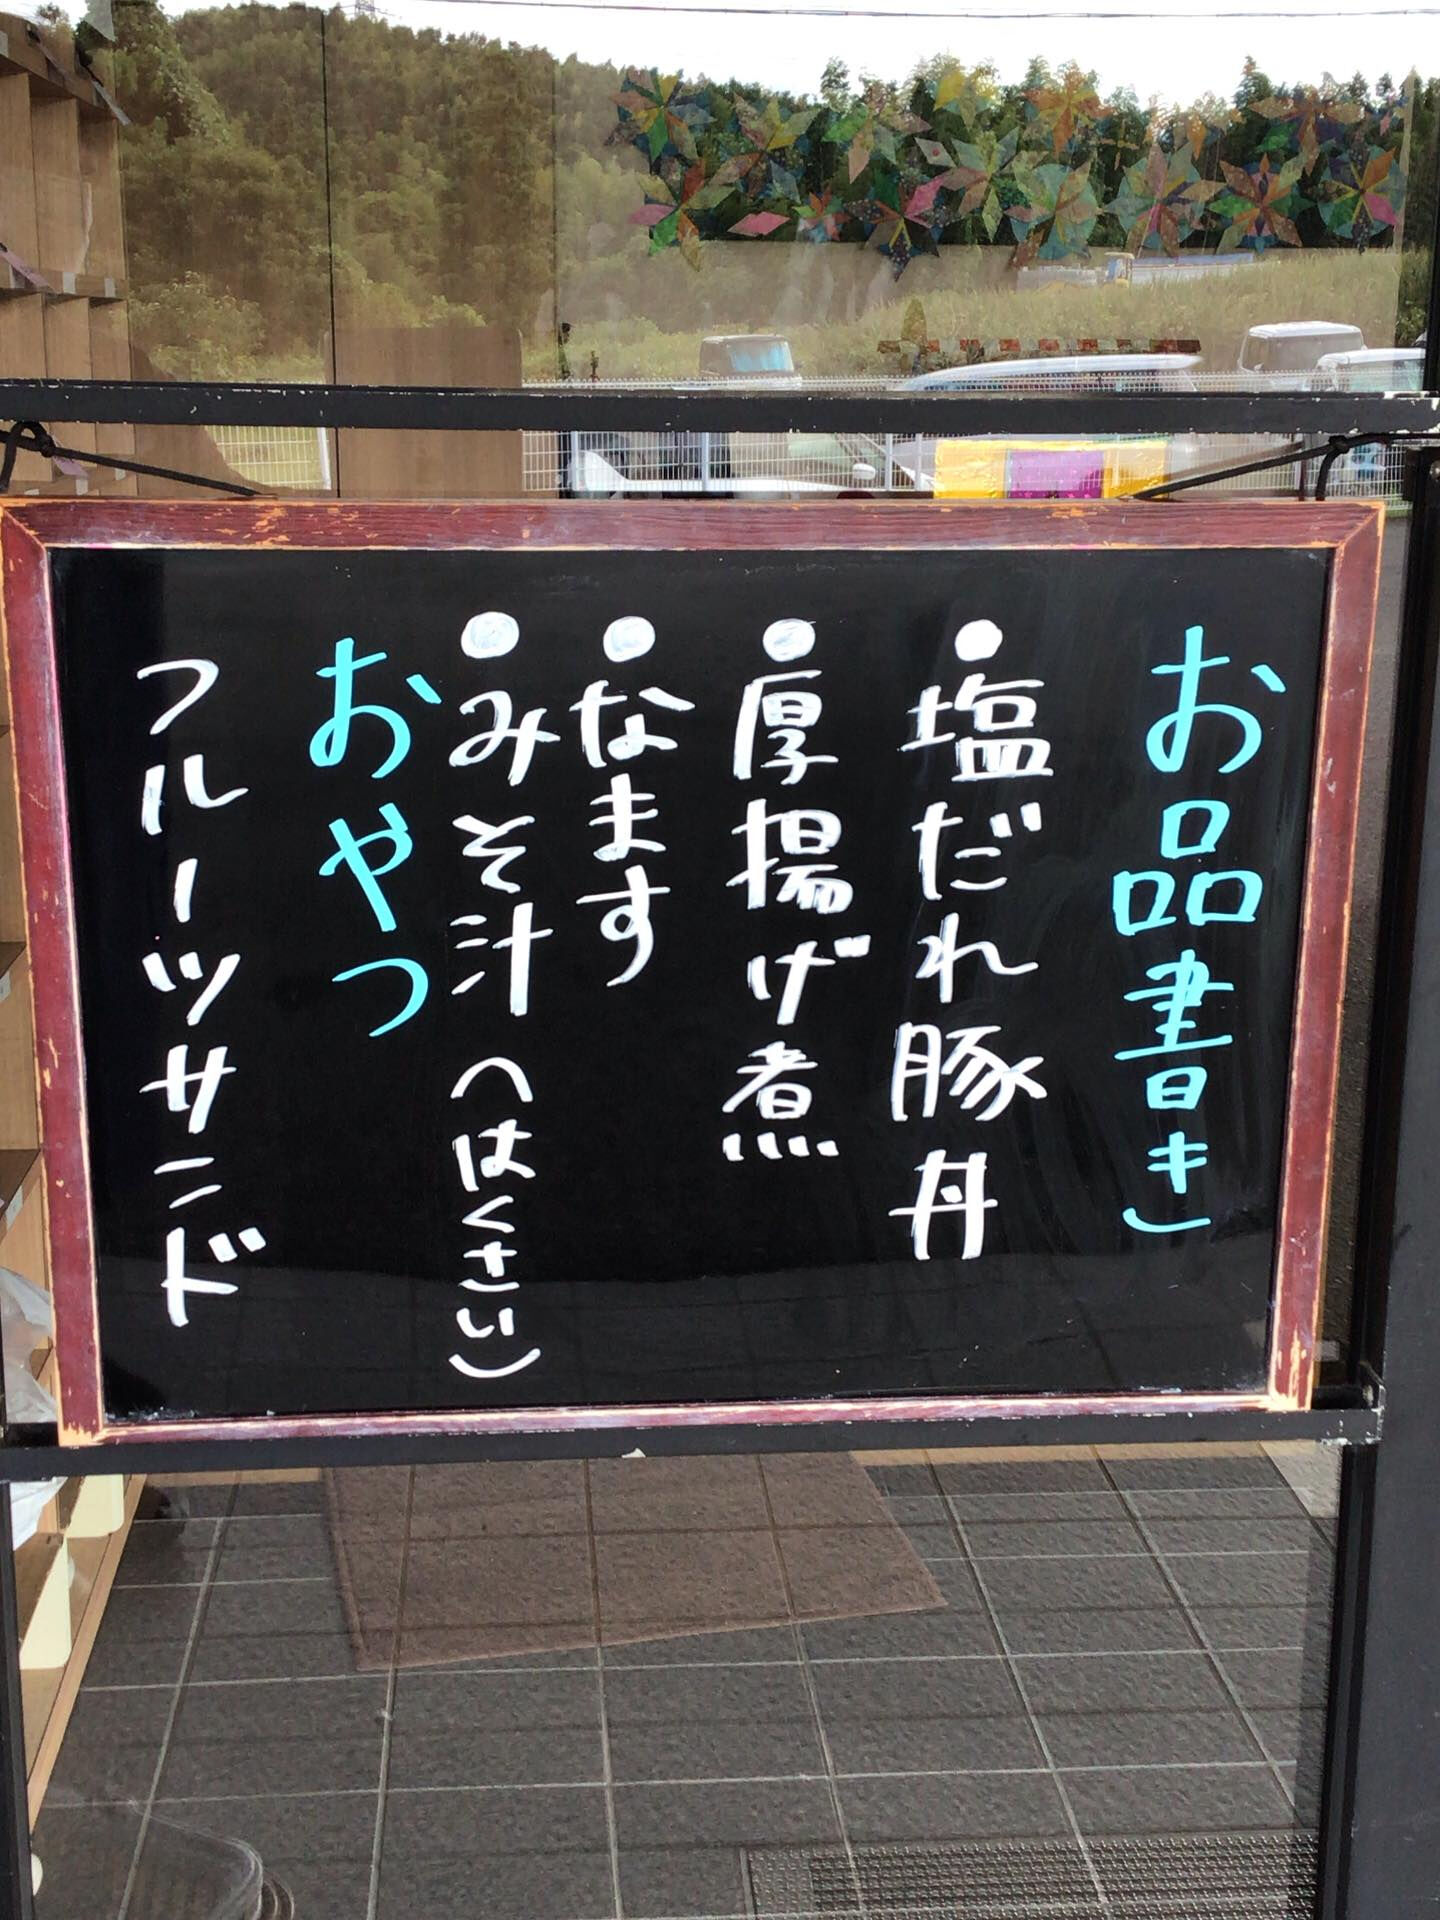 お品書き
●塩だれ豚丹
●厚揚げ煮
●なます
●みそ汁(はくさい)
おやつ
フルーツサンド